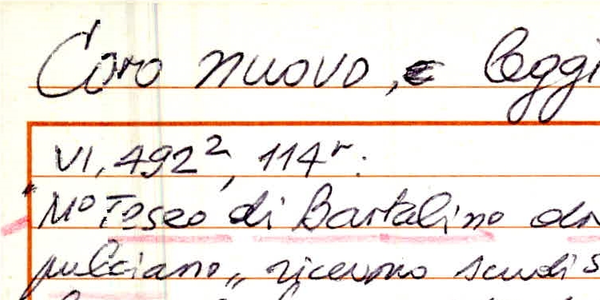 Coro nuovo, e leggi
VI, 492², 114r:
"M° Teseo di Bartalino da
pulciano„ ricevono scudi s